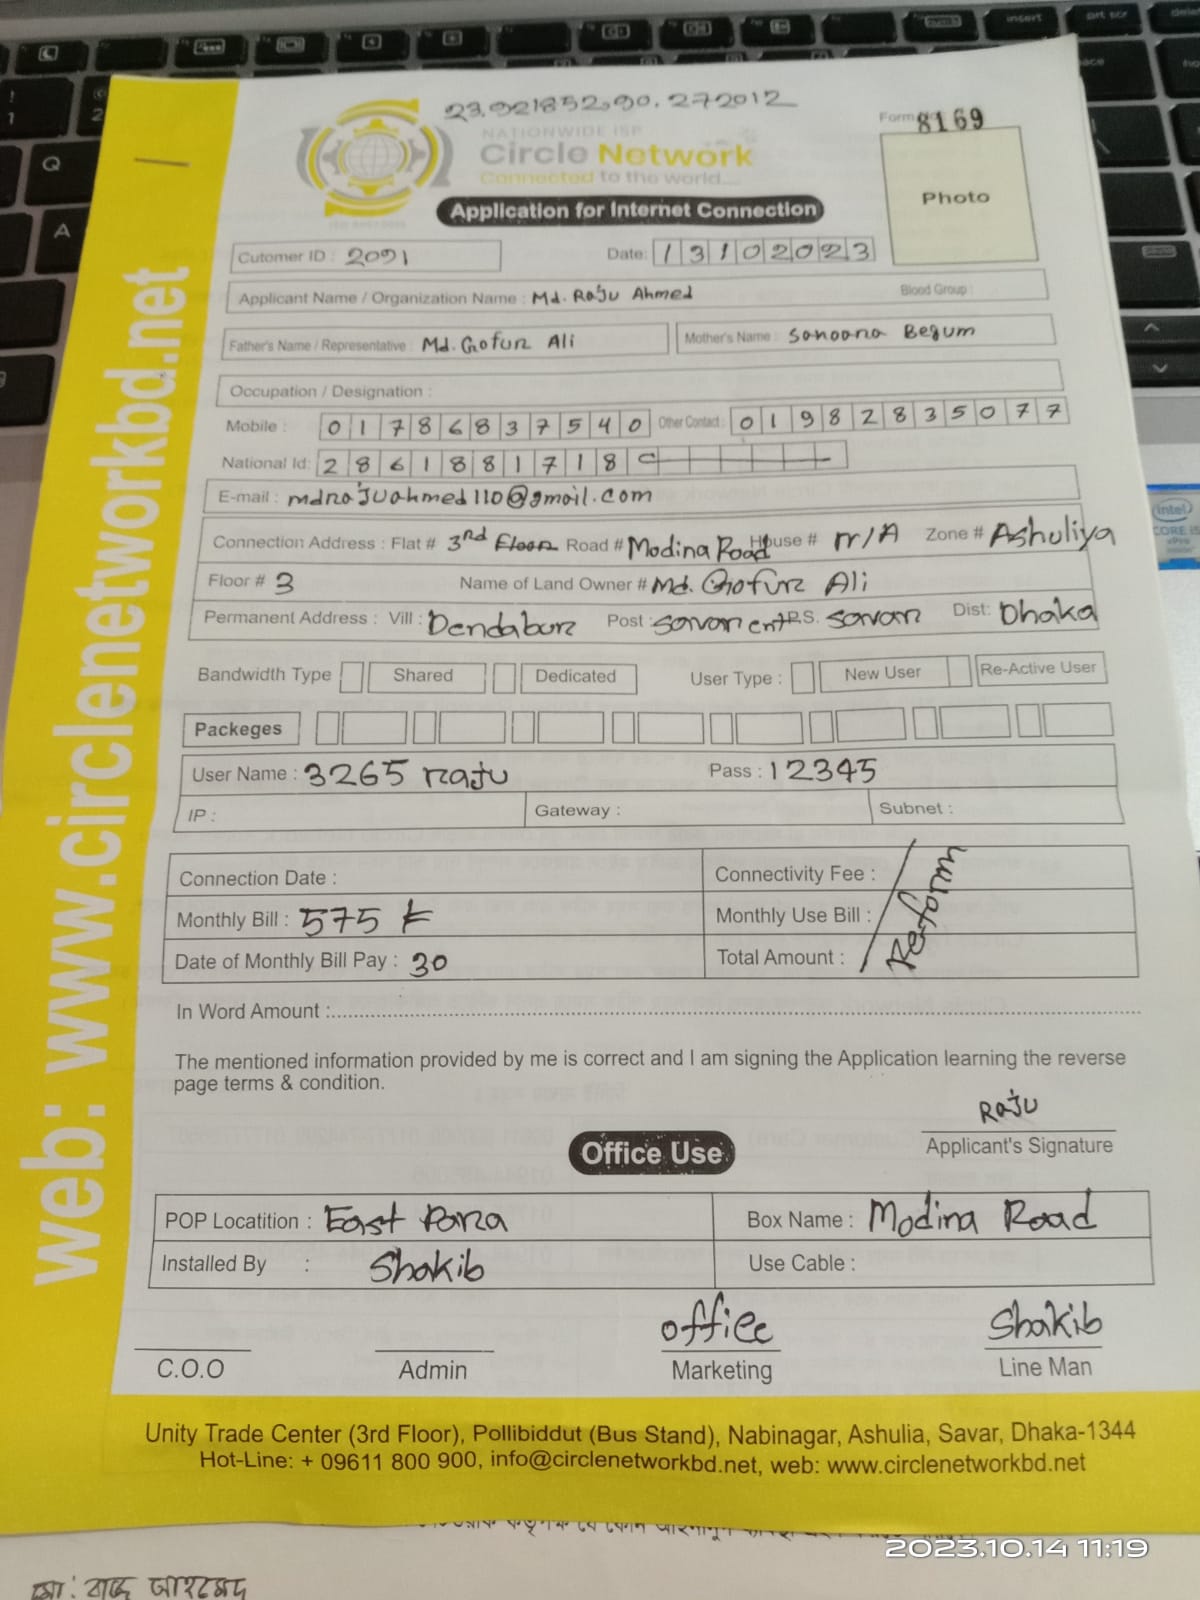 23.921852,90.272012
Form 8169
NATIONWIDE ISP
Circle Network
Connected to the world....
Photo
Application for Internet Connection
Cutomer ID : 2091 Date: 13102023
Applicant Name / Organization Name : Md. Raju Ahmed Blood Group :
Father's Name / Representative : Md. Gofur Ali Mother's Name : Sanoara Begum
Occupation / Designation :
Mobile : 01786837540 Other Contact : 01982835077
National Id: 2861881718
E-mail : mdrajuahmed110@gmail.com
Connection Address : Flat # 3rd Floor Road # Modina Road House # N/A Zone # Ashuliya
Floor # 3 Name of Land Owner # Md. Gofur Ali
Permanent Address : Vill : Dendabur Post : savar cent P.S. savar Dist: Dhaka
Bandwidth Type Shared Dedicated User Type : New User Re-Active User
Packeges
User Name : 3265 raju Pass : 12345
IP : Gateway : Subnet :
Connection Date : Connectivity Fee :
Monthly Bill : 575 ৳ Monthly Use Bill :
Date of Monthly Bill Pay : 30 Total Amount :
In Word Amount :
The mentioned information provided by me is correct and I am signing the Application learning the reverse
page terms & condition.
Raju
Applicant's Signature
Office Use
POP Locatition : East Para Box Name : Modina Road
Installed By : Shakib Use Cable :
office Shakib
C.O.O Admin Marketing Line Man
Unity Trade Center (3rd Floor), Pollibiddut (Bus Stand), Nabinagar, Ashulia, Savar, Dhaka-1344
Hot-Line: + 09611 800 900, info@circlenetworkbd.net, web: www.circlenetworkbd.net
web: www.circlenetworkbd.net
2023.10.14 11:19
মো: রাজু আহমেদ
intel
CORE i5
vPro